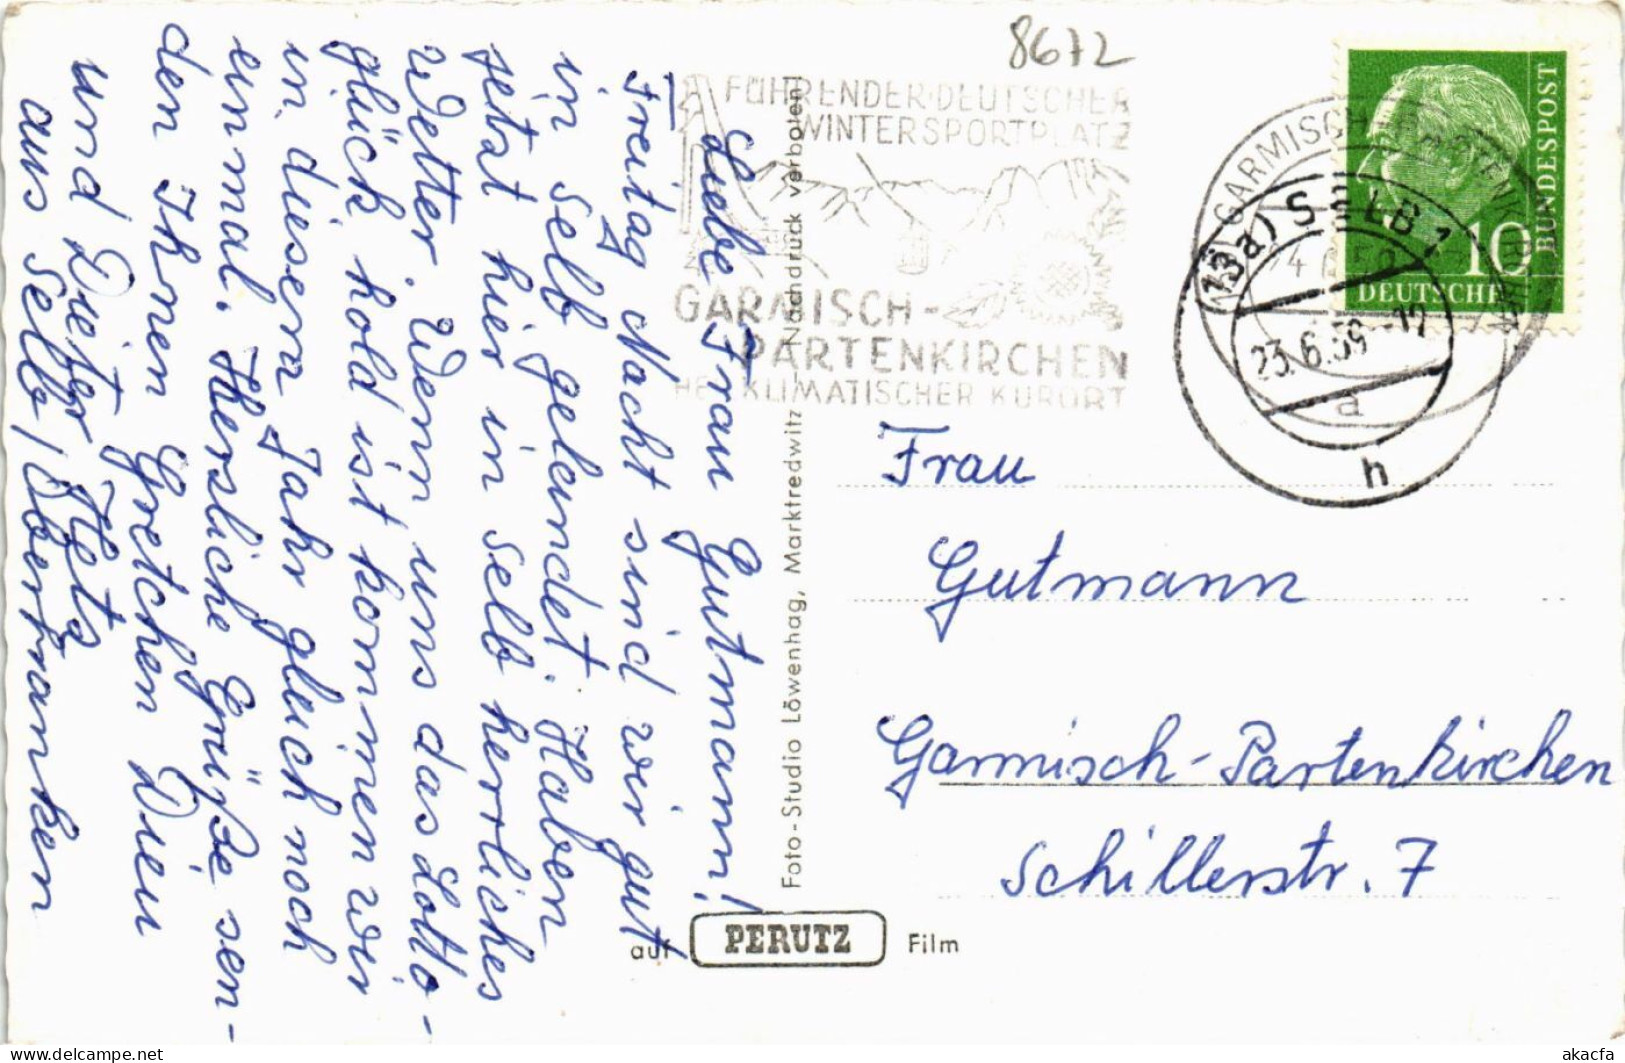 8672
FÜHRENDER DEUTSCHER
WINTERSPORTPLATZ
GARMISCH-
PARTENKIRCHEN
HEILKLIMATISCHER KURORT
GARMISCH-PARTENKIRCHEN
(13a) SELB 1
23.6.59.-12
a
h
10
BUNDESPOST
DEUTSCHE
Liebe Frau Gutmann!
Freitag Nacht sind wir gut
in Selb gelendet. Haben
jetzt hier in Selb herrliches
Wetter. Wenn uns das Lotto-
glück hold ist kommen wir
in diesem Jahr gleich noch
einmal. Herzliche Grüße sen-
den Ihnen Gretchen Dieu
und Dieter
aus Selb/Oberfranken
Foto-Studio Löwenhag, Marktredwitz - Nachdruck verboten!
Frau
Gutmann
Garmisch-Partenkirchen
Schillerstr. 7
auf PERUTZ Film
akacfa
delcampe.net